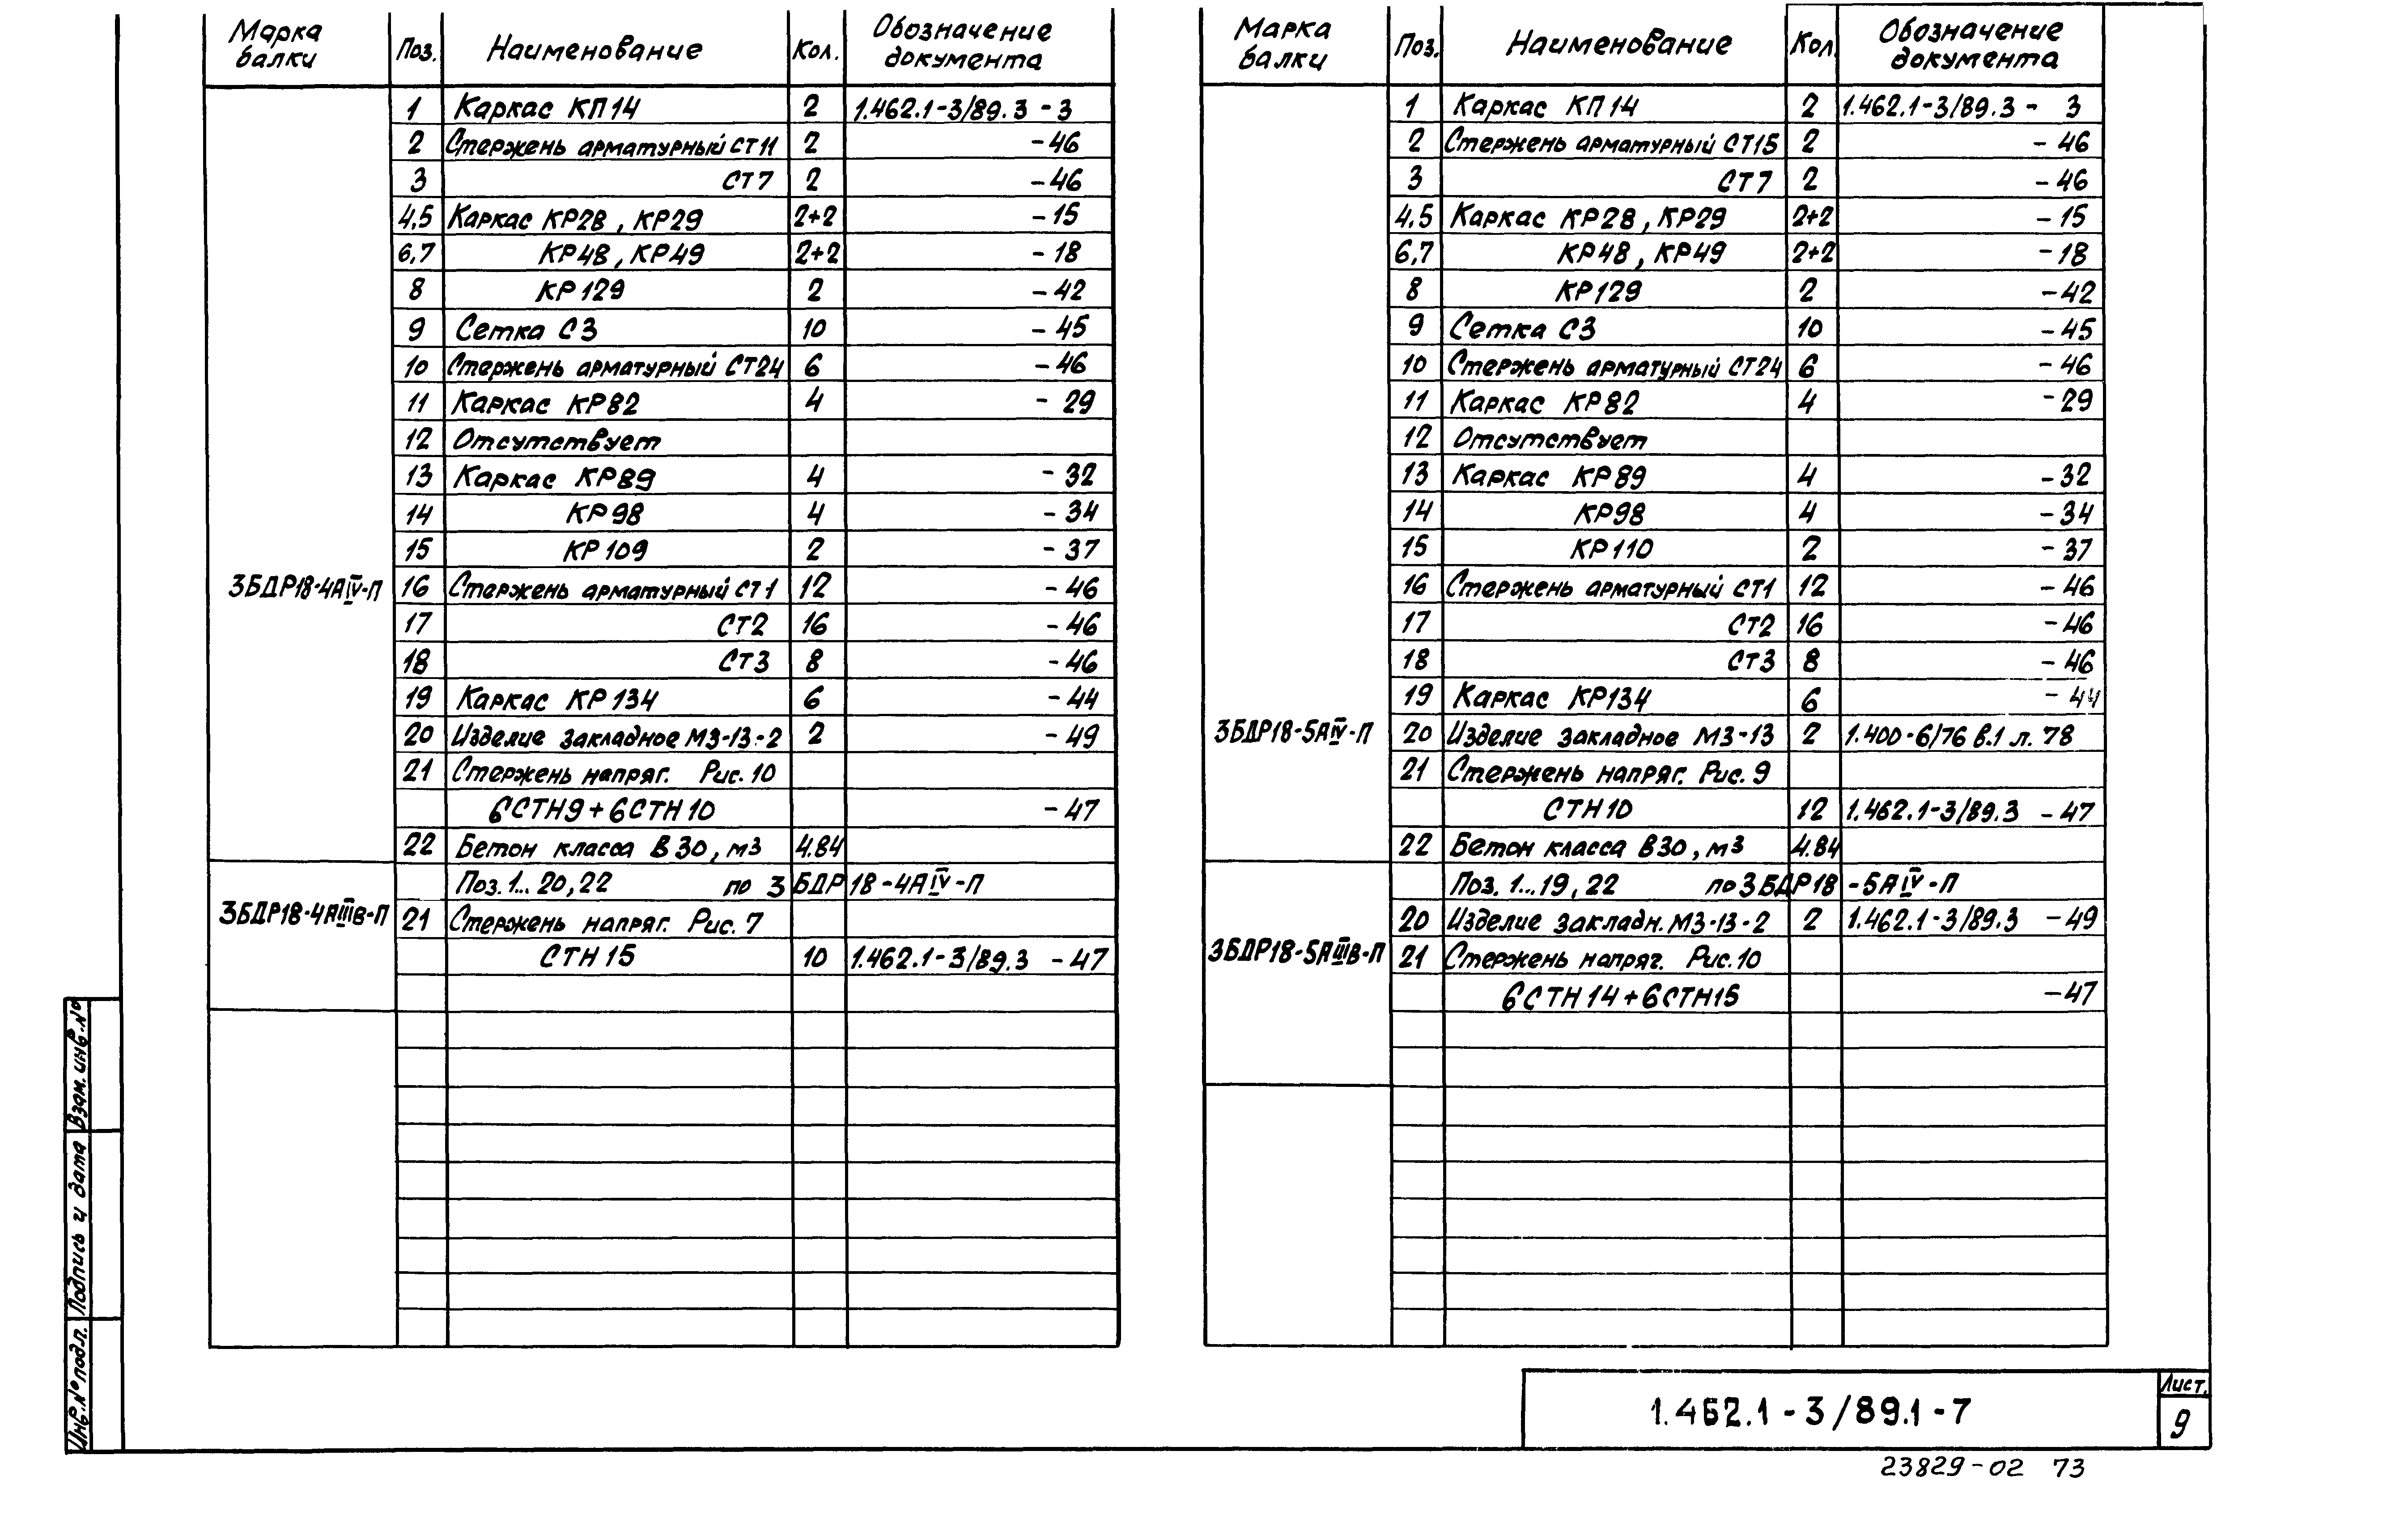 Марка балки | Поз. | Наименование | Кол. | Обозначение документа
3БДР18-4АIV-П
1 Каркас КП14 2 1.462.1-3/89.3 - 3
2 Стержень арматурный СТ11 2 -46
3 СТ7 2 -46
4,5 Каркас КР28, КР29 2+2 -15
6,7 КР48, КР49 2+2 -18
8 КР129 2 -42
9 Сетка С3 10 -45
10 Стержень арматурный СТ24 6 -46
11 Каркас КР82 4 -29
12 Отсутствует
13 Каркас КР89 4 -32
14 КР98 4 -34
15 КР109 2 -37
16 Стержень арматурный СТ1 12 -46
17 СТ2 16 -46
18 СТ3 8 -46
19 Каркас КР134 6 -44
20 Изделие закладное МЗ-13-2 2 -49
21 Стержень напряг. Рис.10
6СТН9+6СТН10 -47
22 Бетон класса В30, м3 4.84
3БДР18-4АIIIВ-П
Поз.1...20,22 по 3БДР18-4АIV-П
21 Стержень напряг. Рис.7
СТН15 10 1.462.1-3/89.3 -47
Марка балки | Поз. | Наименование | Кол. | Обозначение документа
3БДР18-5АIV-П
1 Каркас КП14 2 1.462.1-3/89.3 - 3
2 Стержень арматурный СТ15 2 -46
3 СТ7 2 -46
4,5 Каркас КР28, КР29 2+2 -15
6,7 КР48, КР49 2+2 -18
8 КР129 2 -42
9 Сетка С3 10 -45
10 Стержень арматурный СТ24 6 -46
11 Каркас КР82 4 -29
12 Отсутствует
13 Каркас КР89 4 -32
14 КР98 4 -34
15 КР110 2 -37
16 Стержень арматурный СТ1 12 -46
17 СТ2 16 -46
18 СТ3 8 -46
19 Каркас КР134 6 -44
20 Изделие закладное МЗ-13 2 1.400-6/76 в.1 л.78
21 Стержень напряг. Рис.9
СТН10 12 1.462.1-3/89.3 -47
22 Бетон класса В30, м3 4.84
3БДР18-5АIIIВ-П
Поз.1...19,22 по 3БДР18-5АIV-П
20 Изделие закладн. МЗ-13-2 2 1.462.1-3/89.3 -49
21 Стержень напряг. Рис.10
6СТН14+6СТН15 -47
Инв.№подл. Подпись и дата Взам.инв.№
1.462.1-3/89.1-7
Лист
9
23829-02 73